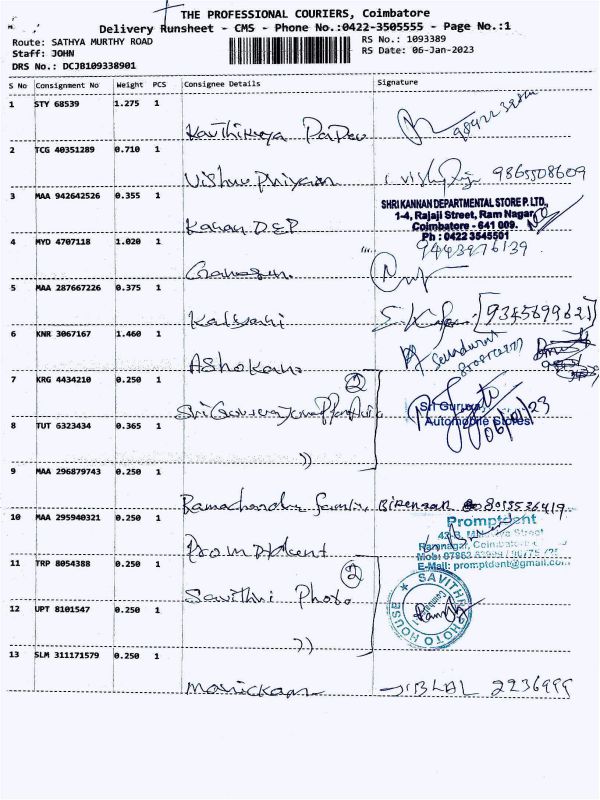 THE PROFESSIONAL COURIERS, Coimbatore
Delivery Runsheet - CMS - Phone No.:0422-3505555 - Page No.:1
Route: SATHYA MURTHY ROAD
RS No.: 1093389
Staff: JOHN
RS Date: 06-Jan-2023
DRS No.: DCJB109338901
S No Consignment No Weight PCS Consignee Details Signature
1 STY 68539 1.275 1
Karthikeya
2 TCG 40351289 0.710 1
Vishnu Priyan 9865508609
3 MAA 942642526 0.355 1
SHRI KANNAN DEPARTMENTAL STORE P.LTD.,
1-4, Rajaji Street, Ram Nagar
Coimbatore - 641 009.
Ph : 0422 3545501
Kanan DEP
4 MYD 4707118 1.020 1
9443976139
Ganesan
5 MAA 287667226 0.375 1
Kalyani [9345699621]
6 KNR 3067167 1.460 1
Ashokan
7 KRG 4434210 0.250 1
2
Sri Guru
Automobile Stores
06/01/23
8 TUT 6323434 0.365 1
))
9 MAA 296879743 0.250 1
Ramachandra
10 MAA 295940321 0.250 1
Promptdent
Ramnagar,
E-Mail: promptdent@gmail.com
Promptdent
11 TRP 8054388 0.250 1
2
Savithri Photo
SAVITHRI PHOTO HOUSE
12 UPT 8101547 0.250 1
))
13 SLM 311171579 0.250 1
Manickam JIBLAL 2236999